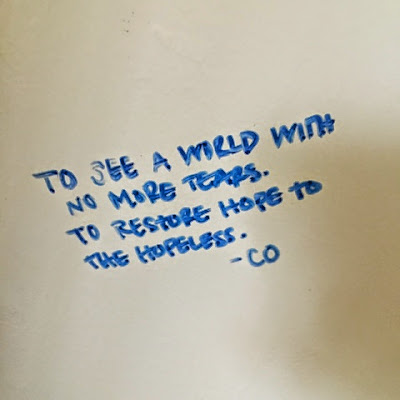 TO SEE A WORLD WITH
NO MORE TEARS.
TO RESTORE HOPE TO
THE HOPELESS.
-CO